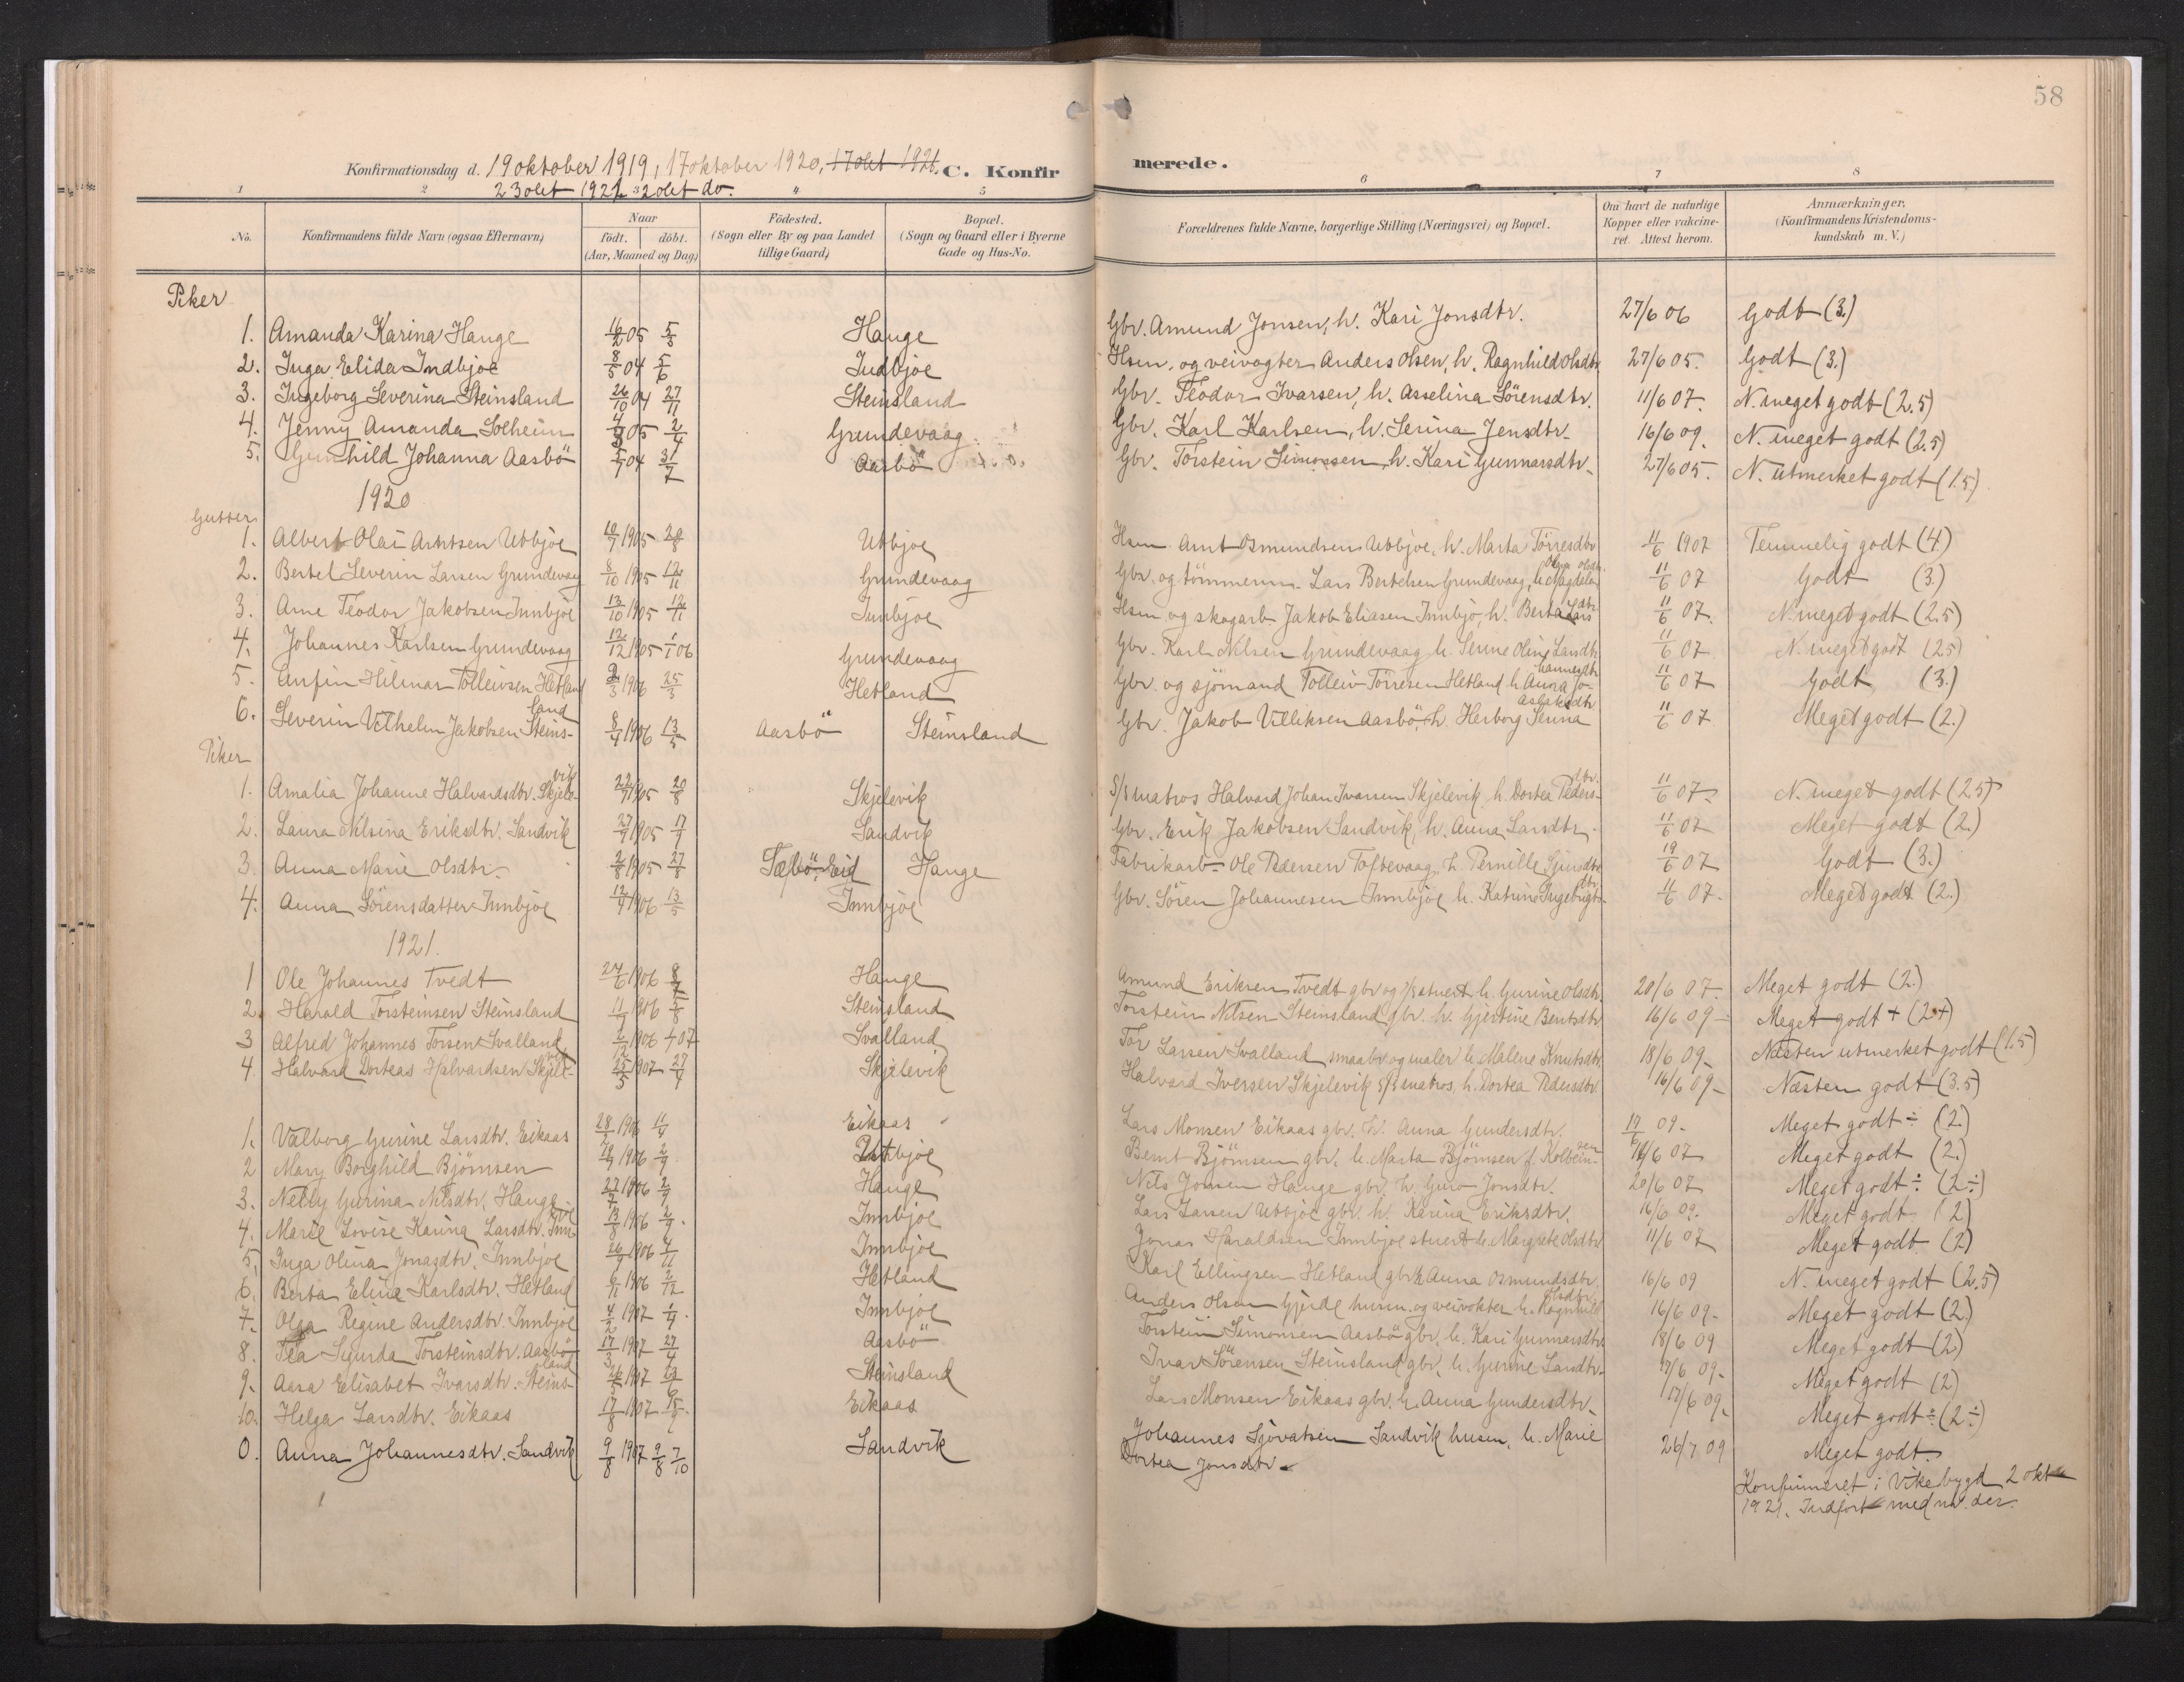 58
Konfirmationsdag d. 19 oktober 1919, 17 oktober 1920, 17 okt 1921. C. Konfirmerede.
23 okt 1921 2 okt do.
1 2 3 4 5 6 7 8
No. Konfirmandens fulde Navn (ogsaa Efternavn) Naar födt. döbt. (Aar, Maaned og Dag) Födested. (Sogn eller By og paa Landet tillige Gaard) Bopæl. (Sogn og Gaard eller i Byerne Gade og Hus-No. Forældrenes fulde Navne, borgerlige Stilling (Næringsvei) og Bopæl. Om havt de naturlige Kopper eller vakcineret. Attest herom. Anmærkninger. (Konfirmandens Kristendomskundskab m. V.)
Piker
1. Amanda Karina Hauge 11/2 05 5/3 Hauge Gbr. Amund Jonsen, h. Kari Jonsdtr. 27/6 06 Godt (3.)
2. Inga Elida Indbjoe 8/5 04 5/6 Indbjoe Hsm. og veivogter Anders Olsen, h. Ragnhild Olsdtr. 27/6 05. Godt (3.)
3. Ingeborg Severina Steinsland 26/10 04 27/11 Steinsland Gbr. Teodor Ivarsen, h. Asselina Sörensdtr. 11/6 07. N. meget godt (2.5)
4. Jenny Amanda Solheim 4/3 05 2/4 Grundevaag Gbr. Karl Karlsen, h. Serina Jensdtr. 16/6 09. N. meget godt (2.5)
5. Gunhild Johanna Aasbö 5/7 04 31/7 Aasbö Gbr. Torstein Simonsen, h. Kari Gunnarsdtr. 27/6 05. N. utmerket godt (1.5)
1920
Gutter
1. Albert Olai Arntsen Utbjoe 10/7 1905 20/8 Utbjoe Hsm. Arnt Osmundsen Utbjoe, h. Marta Törresdtr 11/6 1907 Temmelig godt (4.)
2. Bertel Severin Larsen Grundevaag 8/10 1905 12/11 Grundevaag Gbr. og tömmerm. Lars Bertelsen Grundevaag, h. Magdela Olsdtr. 11/6 07 Godt (3.)
3. Arne Teodor Jakobsen Innbjoe 13/10 1905 12/11 Innbjoe Hsm og skogarb. Jakob Eliasen Innbjo, h. Berta Larsdtr. 11/6 07. N. meget godt (2.5)
4. Johannes Karlsen Grundevaag 12/12 1905 1/1 06 Grundevaag Gbr. Karl Nilsen Grundevaag h. Serine Oline Larsdtr 11/6 07 N. meget godt (2.5)
5. Anfin Hilmar Tolleivsen Hetland 2/3 1906 25/3 Hetland Gbr. og sjömand Tolleiv Törresen Hetland h. Anna Johannesdtr 11/6 07 Godt (3.)
6. Severin Vilhelm Jakobsen Steinsland 8/4 1906 13/5 Aasbö Steinsland Gbr. Jakob Villiksen Aasbö, h. Herborg Serina Aslaksdtr 11/6 07 Meget godt (2.)
Piker
1. Amalia Johanne Halvardsdtr. Skjelevik 22/7 1905 20/8 Skjelevik S/s matros Halvard Johan Ivarsen Skjelevik, h. Dortea Pedersdtr. 11/6 07. N. meget godt (2.5)
2. Laura Nilsina Eriksdtr. Sandvik 27/7 1905 17/9 Sandvik Gbr. Erik Jakobsen Sandvik, h. Anna Larsdtr. 11/6 07 Meget godt (2.)
3. Anna Marie Olsdtr. 2/8 1905 27/8 Sæbö, Eid Hauge Fabrikarb. Ole Pedersen Toftevaag, h. Pernille 19/6 07 Godt (3.)
4. Anna Sörensdatter Innbjoe 12/4 1906 13/5 Innbjoe Gbr. Sören Johannesen Innbjoe h. Katrine Ingebrigtsdtr. 11/6 07. Meget godt (2.)
1921.
1 Ole Johannes Tvedt 24/6 1906 8/7 Hauge Amund Eriksen Tvedt gbr og s/s stuert h. Gurine Olsdtr. 20/6 07. Meget godt (2.)
2. Harald Torsteinsen Steinsland 11/7 1906 5/8 Steinsland Torstein Nilsen Steinsland gbr. h. Gjertine Bentsdtr 16/6 09 Meget godt + (2+)
3 Alfred Johannes Torsen Svalland 2/12 1906 07 Svalland Tor Larsen Svalland smaabr og maler h. Malene Knutsdtr. 18/6 09. Næsten utmerket godt (1.5)
4. Halvard Dorteas Halvardsen Skjelevik 25/3 1907 27/4 Skjelevik Halvard Iversen Skjelevik s/s matros, h. Dortea Pedersdtr. 16/6 09 Næsten godt (3.5)
1. Valborg Gurine Larsdtr. Eikaas 28/2 1906 11/4 Eikaas Lars Monsen Eikaas gbr. h. Anna Gundersdtr. 17/6 09. Meget godt ÷ (2.)
2 Mary Borghild Björnsen 19/7 1906 2/9 Utbjoe Bernt Björnsen gbr. h. Marta Björnsen f. Kolbeinsen 16/6 07 Meget godt (2.)
3. Nelly Gurina Nilsdtr. Hauge 27/7 1906 2/9 Hauge Nils Jonsen Hauge gbr, h. Guro Jonsdtr. 20/6 07 Meget godt ÷ (2÷)
4. Marie Lovise Karina Larsdtr. Innbjoe 13/8 1906 2/9. Innbjoe Lars Larsen Utbjoe gbr. h. Karina Eriksdtr. 16/6 09. Meget godt (2)
5. Inga Olina Jonasdtr. Innbjoe 26/9 1906 4/11 Innbjoe Jonas Haraldsen Innbjoe stuert h. Margrete Olsdtr 11/6 07 Meget godt (2)
6. Berta Eline Karlsdtr. Hetland 6/11 1906 2/12 Hetland Karl Ellingsen Hetland gbr h. Anna Osmundsdtr. 16/6 09 N. meget godt (2.5)
7. Olga Regine Andersdtr. Innbjoe 4/2 1907 1/4. Innbjoe Anders Olsen Gjerde husm. og veivokter h. Ragnhild Olsdtr. 16/6 09. Meget godt (2.)
8. Tea Sigurda Torsteinsdtr. Aasbö 17/3 1907 27/4 Aasbö Torstein Simonsen Aasbö gbr. h. Kari Gunnarsdtr 18/6 09 Meget godt (2)
9. Aasa Elisabet Ivarsdtr. Steinsland 26/5 1907 23/6 Steinsland Ivar Sörensen Steinsland gbr. h. Gurine Larsdtr. 17/6 09. Meget godt (2)
10. Helga Larsdtr. Eikaas 17/8 1907 15/9. Eikaas Lars Monsen Eikaas gbr. h. Anna Gundersdtr. 17/6 09. Meget godt ÷ (2÷)
0. Anna Johannesdtr. Sandvik 9/8 1907 9/8 7/10 Sandvik Johannes Sjovatsen Sandvik husm. h. Marie 26/7 09 Meget godt.
Dortea Jonsdtr.
Konfirmeret i Vikebygd 2 okt
1921. Indfört med nr. der.